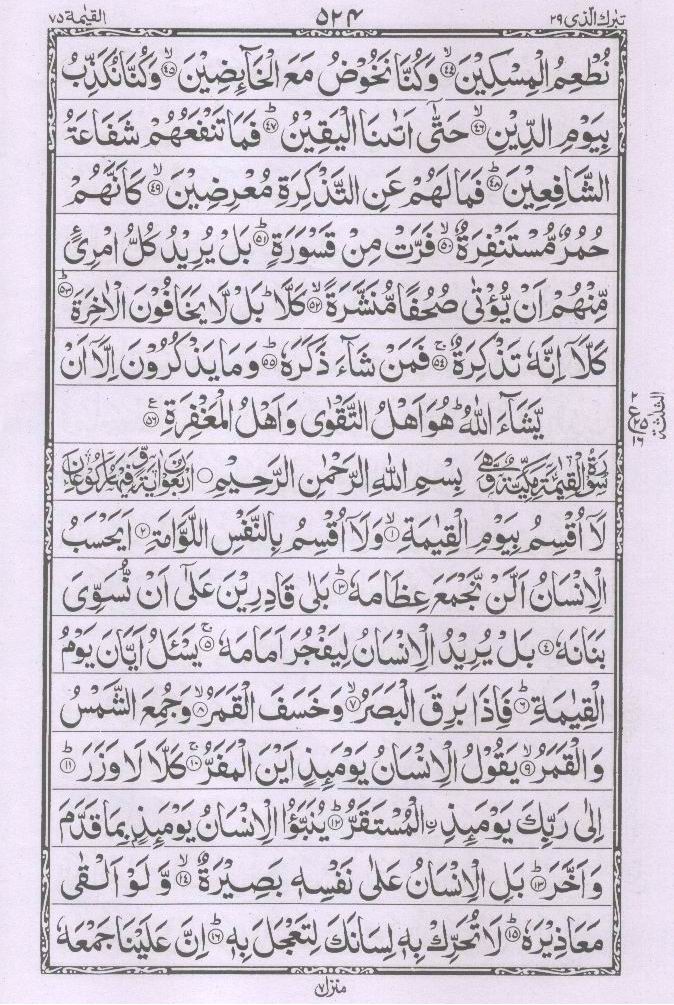 تبٰرك الذی ٢٩ ۵۲۴ القیٰمة ٧٥
نُطْعِمُ الْمِسْكِيْنَ ۙ﴿٤٤﴾ وَكُنَّا نَخُوْضُ مَعَ الْخَآئِضِيْنَ ۙ﴿٤٥﴾ وَكُنَّا نُكَذِّبُ
بِيَوْمِ الدِّيْنِ ۙ﴿٤٦﴾ حَتّٰٓى اَتٰىنَا الْيَقِيْنُ ؕ﴿٤٧﴾ فَمَا تَنْفَعُهُمْ شَفَاعَةُ
الشَّافِعِيْنَ ؕ﴿٤٨﴾ فَمَا لَهُمْ عَنِ التَّذْكِرَةِ مُعْرِضِيْنَ ۙ﴿٤٩﴾ كَاَنَّهُمْ
حُمُرٌ مُّسْتَنْفِرَةٌ ۙ﴿٥٠﴾ فَرَّتْ مِنْ قَسْوَرَةٍ ؕ﴿٥١﴾ بَلْ يُرِيْدُ كُلُّ امْرِئٍ
مِّنْهُمْ اَنْ يُّؤْتٰى صُحُفًا مُّنَشَّرَةً ۙ﴿٥٢﴾ كَلَّا ؕ بَلْ لَّا يَخَافُوْنَ الْاٰخِرَةَ ؕ﴿٥٣﴾
كَلَّاۤ اِنَّهٗ تَذْكِرَةٌ ۚ﴿٥٤﴾ فَمَنْ شَآءَ ذَكَرَهٗ ؕ﴿٥٥﴾ وَمَا يَذْكُرُوْنَ اِلَّاۤ اَنْ
يَّشَآءَ اللّٰهُ ؕ هُوَ اَهْلُ التَّقْوٰى وَاَهْلُ الْمَغْفِرَةِ ﴿٥٦﴾
سُوْرَةُ الْقِيٰمَةِ مَكِّيَّةٌ وَّهِيَ بِسْمِ اللّٰهِ الرَّحْمٰنِ الرَّحِيْمِ اَرْبَعُوْنَ اٰيَةً وَّفِيْهَا رُكُوْعَانِ
لَاۤ اُقْسِمُ بِيَوْمِ الْقِيٰمَةِ ۙ﴿١﴾ وَلَاۤ اُقْسِمُ بِالنَّفْسِ اللَّوَّامَةِ ؕ﴿٢﴾ اَيَحْسَبُ
الْاِنْسَانُ اَلَّنْ نَّجْمَعَ عِظَامَهٗ ؕ﴿٣﴾ بَلٰى قَادِرِيْنَ عَلٰٓى اَنْ نُّسَوِّيَ
بَنَانَهٗ ﴿٤﴾ بَلْ يُرِيْدُ الْاِنْسَانُ لِيَفْجُرَ اَمَامَهٗ ۚ﴿٥﴾ يَسْئَلُ اَيَّانَ يَوْمُ
الْقِيٰمَةِ ؕ﴿٦﴾ فَاِذَا بَرِقَ الْبَصَرُ ۙ﴿٧﴾ وَخَسَفَ الْقَمَرُ ۙ﴿٨﴾ وَجُمِعَ الشَّمْسُ
وَالْقَمَرُ ۙ﴿٩﴾ يَقُوْلُ الْاِنْسَانُ يَوْمَئِذٍ اَيْنَ الْمَفَرُّ ۚ﴿١٠﴾ كَلَّا لَا وَزَرَ ؕ﴿١١﴾
اِلٰى رَبِّكَ يَوْمَئِذِ ࣙالْمُسْتَقَرُّ ؕ﴿١٢﴾ يُنَبَّؤُا الْاِنْسَانُ يَوْمَئِذٍۭ بِمَا قَدَّمَ
وَاَخَّرَ ؕ﴿١٣﴾ بَلِ الْاِنْسَانُ عَلٰى نَفْسِهٖ بَصِيْرَةٌ ۙ﴿١٤﴾ وَّلَوْ اَلْقٰى
مَعَاذِيْرَهٗ ؕ﴿١٥﴾ لَا تُحَرِّكْ بِهٖ لِسَانَكَ لِتَعْجَلَ بِهٖ ؕ﴿١٦﴾ اِنَّ عَلَيْنَا جَمْعَهٗ
الثلثة
منزل ۷